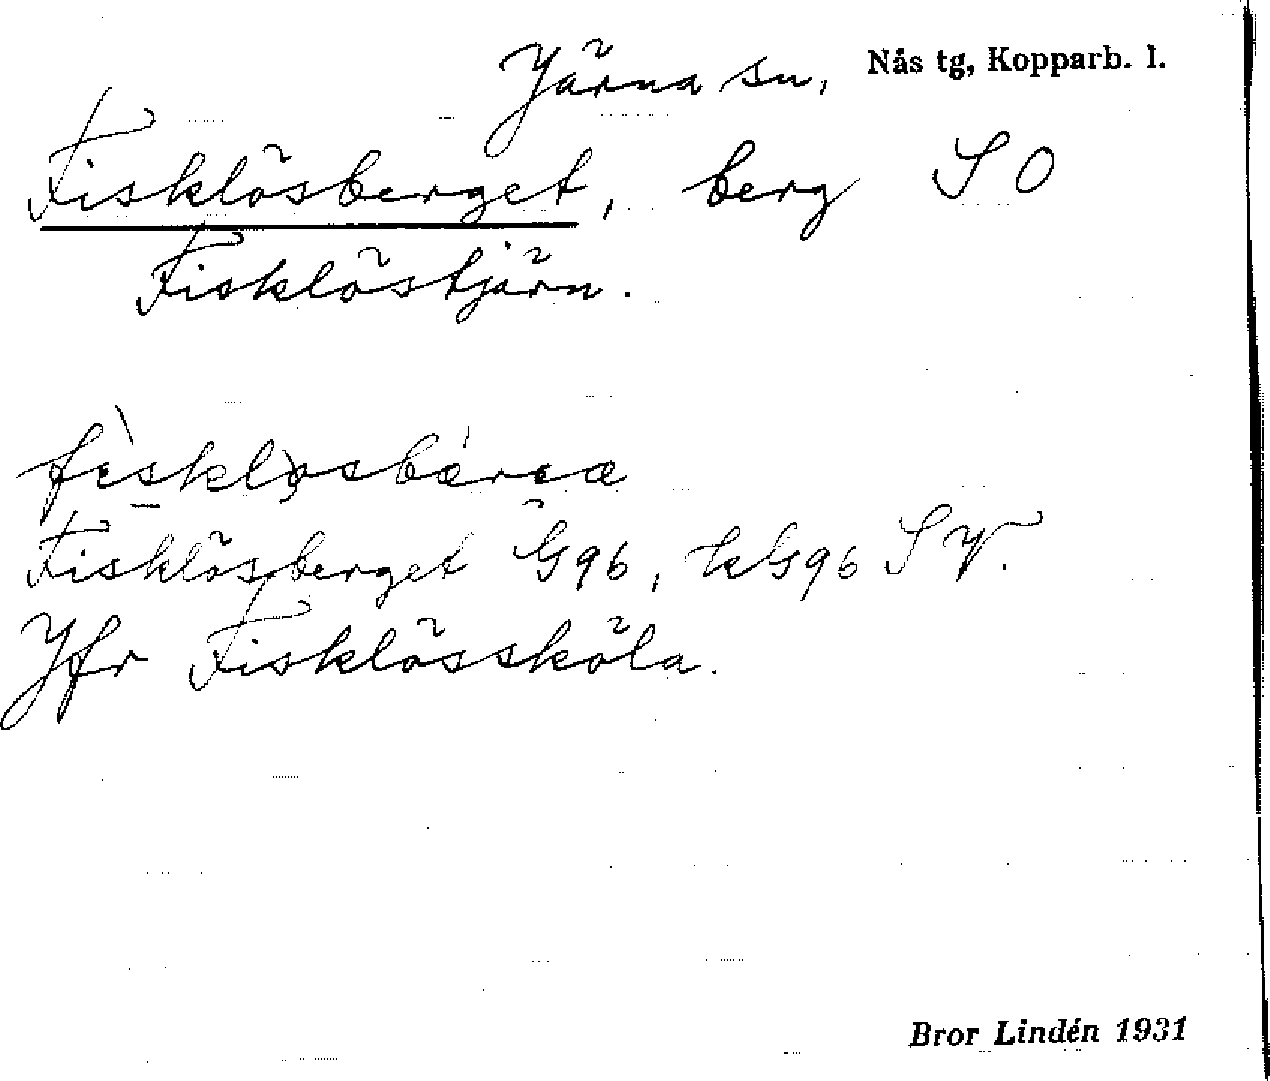 Järna sn, Nås tg, Kopparb. l.
Fisklösberget, berg S O
Fisklöstjärn.
Fisklösberget G96, kG96 S V.
Jfr Fisklössköla.
Bror Lindén 1931